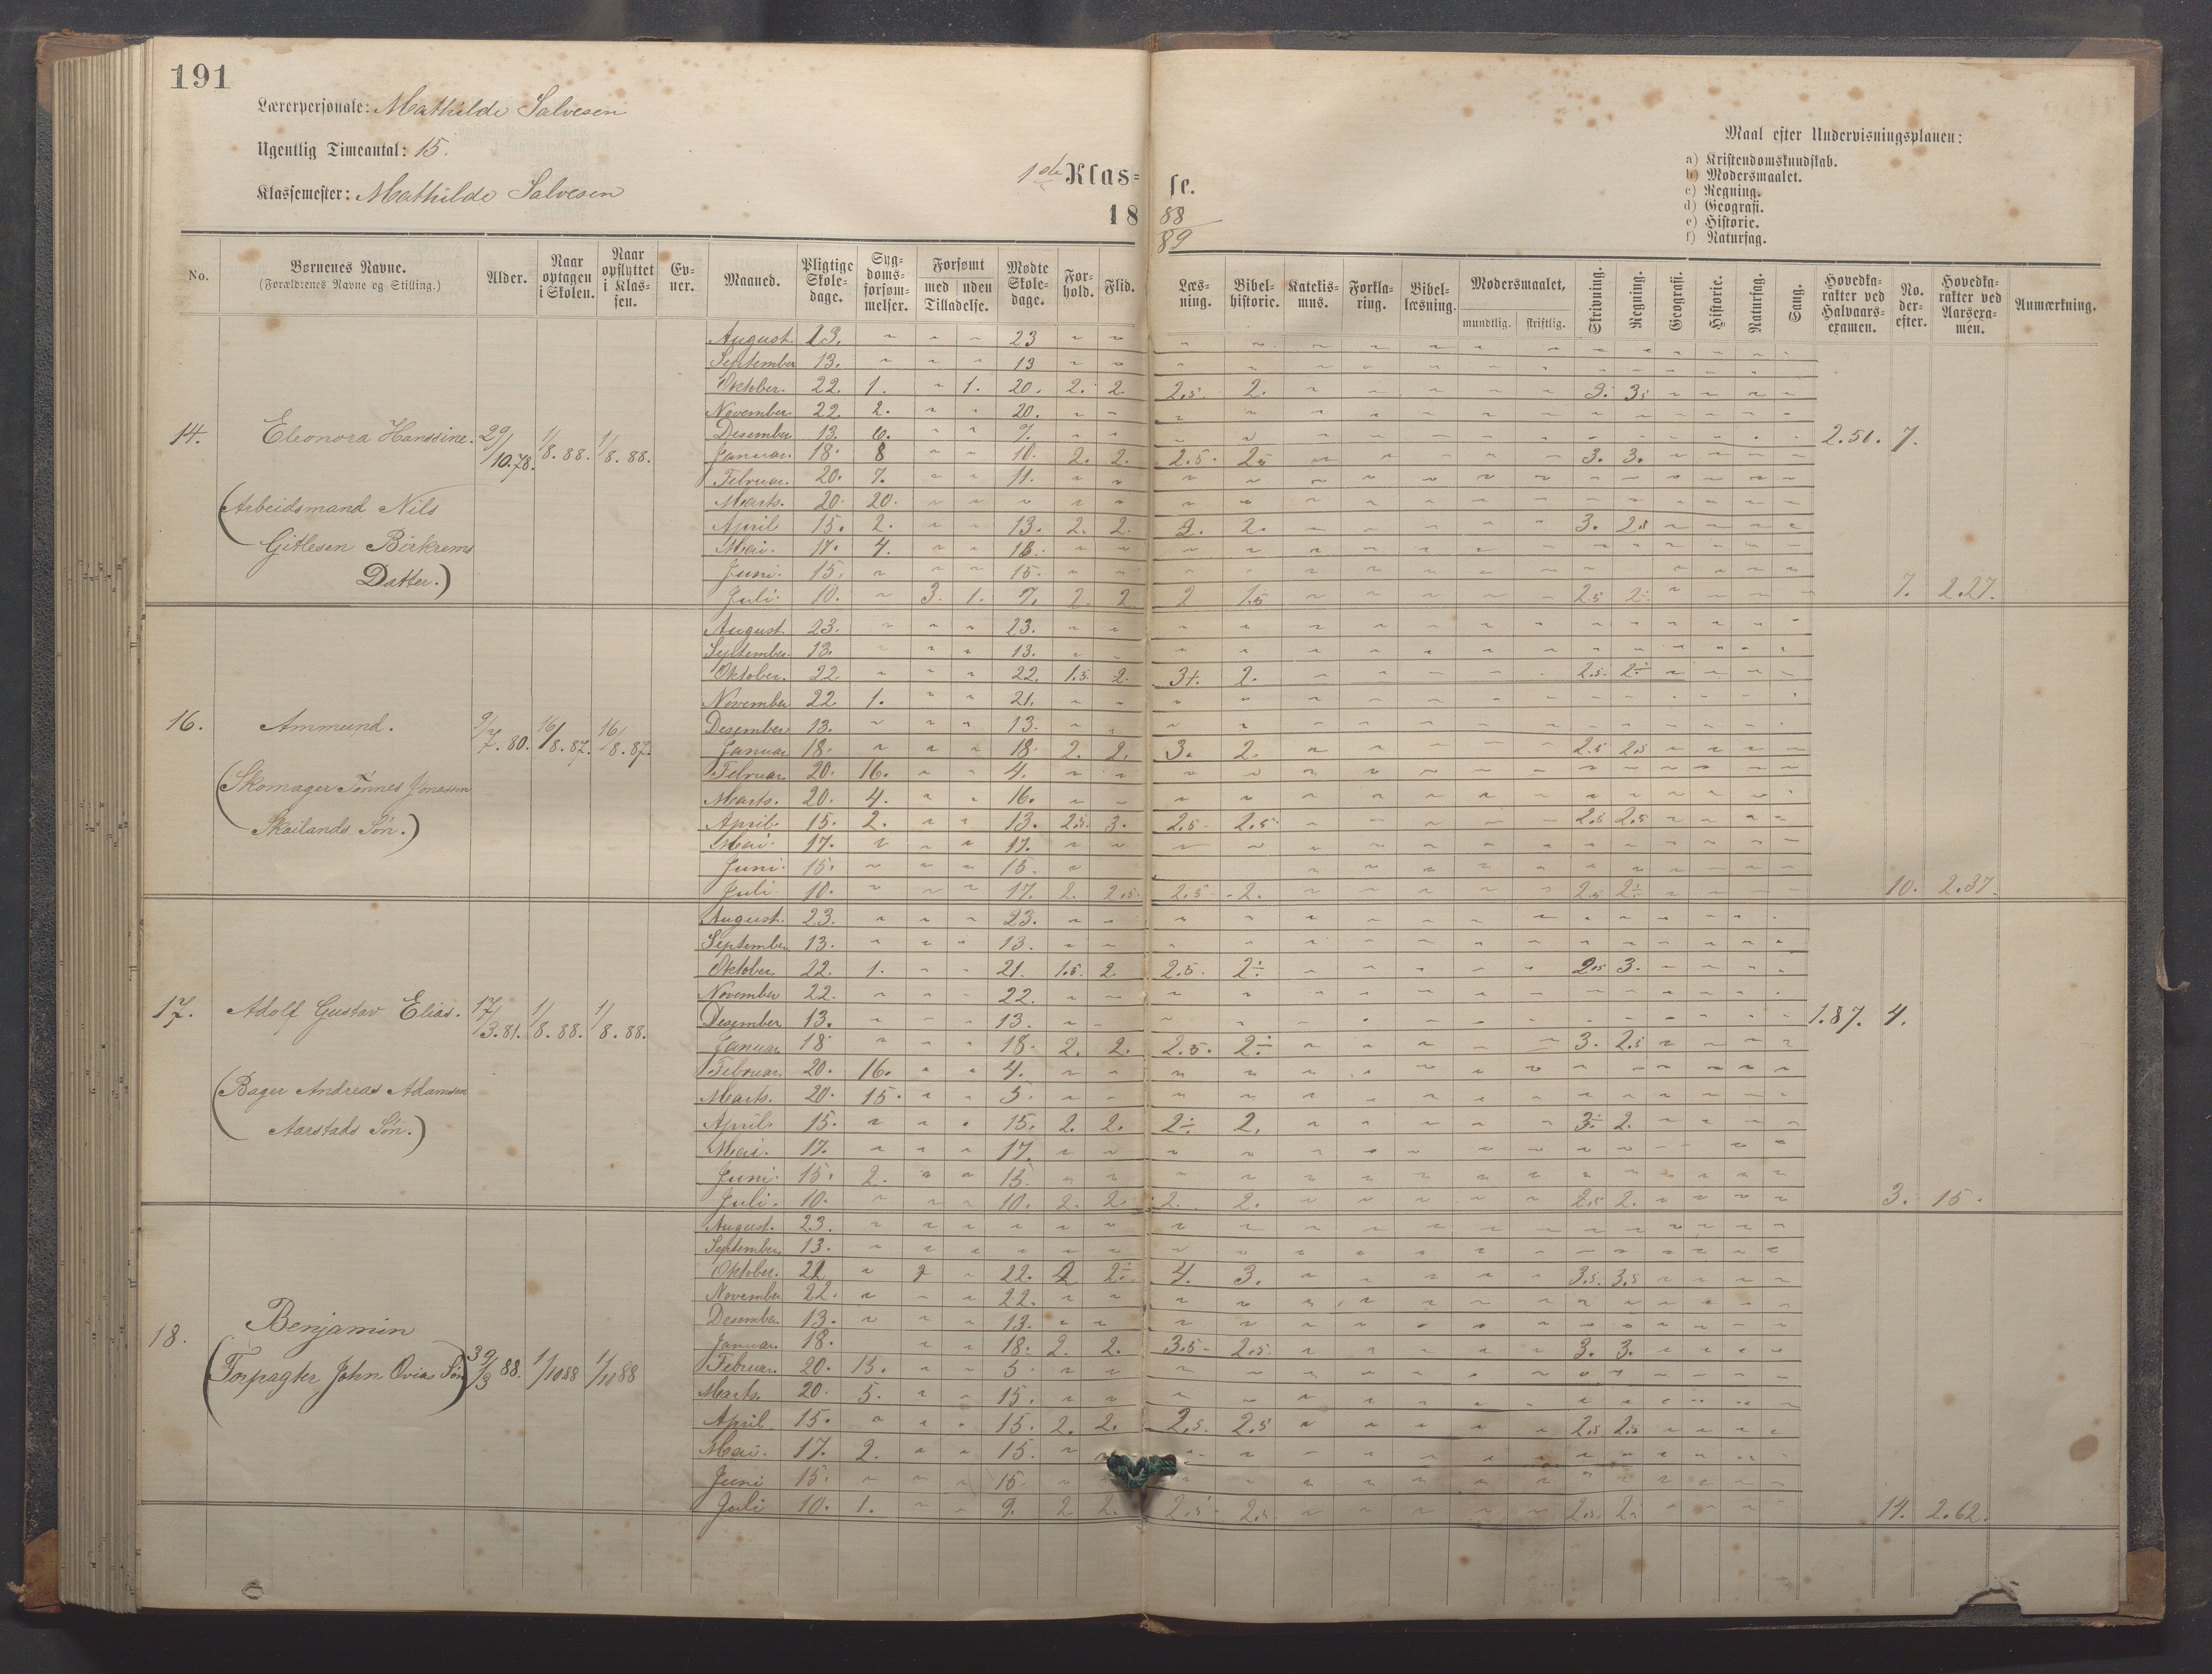 191
Lærerpersonale: Mathilde Salvesen
Ugentlig Timeantal: 15.
Klassemester: Mathilde Salvesen
1ste Klas= se.
18 88/89
Maal efter Undervisningsplanen:
a) Kristendomskundskab.
b) Modersmaalet.
c) Regning.
d) Geografi.
e) Historie.
f) Naturfag.
No. Børnenes Navne. (Forældrenes Navne og Stilling.) Alder. Naar optagen i Skolen. Naar opflyttet i Klas-sen. Ev-ner. Maaned. Pligtige Skole-dage. Syg-doms-forsøm-melser. Forsømt med uden Tilladelse. Mødte Skole-dage. For-hold. Flid. Læs-ning. Bibel-historie. Katekis-mus. Forkla-ring. Bibel-læsning. Modersmaalet, mundtlig. skriftlig. Skrivning. Regning. Geografi. Historie. Naturfag. Sang. Hovedka-rakter ved Halvaars-examen. No. der-efter. Hovedka-rakter ved Aarsexa-men. Anmærkning.
August. 23. ~ ~ ~ 23 ~ ~
September 13. ~ ~ ~ 13 ~ ~
Oktober. 22. 1. ~ 1. 20. 2. 2. 2.5. 2. 3. 3.
November. 22. 2. ~ ~ 20. ~ ~
14. Eleonora Hanssine. 29/10.78. 1/8.88. 1/8.88. Desember 13. 6. ~ ~ 7. ~ ~ 2.50. 7.
Januar. 18. 8 ~ ~ 10. 2. 2. 2.5. 2.5 3. 3.
Februar. 20. 7. ~ ~ 11. ~ ~
(Arbeidsmand Nils Marts. 20. 20. ~ ~ ~ ~ ~
April 15. 2. ~ ~ 13. 2. 2. 2. 2. 3. 2.5
Gitlesen Birkrems Mai. 17. 4. ~ ~ 13. ~ ~
Datter.) Juni. 15. ~ ~ ~ 15. ~ ~
Juli. 10. ~ 3. 1. 7. 2. 2 2 1.5 2.5 2. 7. 2.27.
August. 23. ~ ~ ~ 23. ~ ~
September. 13. ~ ~ ~ 13. ~ ~
Oktober. 22. ~ ~ ~ 22. 1.5. 2. 3+. 2. 2.5. 2÷
November 22. 1. ~ ~ 21. ~ ~
16. Ammund. 9/7.80. 16/8.87. 16/8.87. Desember 13. ~ ~ ~ 13. ~ ~
Januar 18. ~ ~ ~ 18. 2. 2. 3. 2. 2.5 2.5
(Skomager Tønnes Jonassen Februar. 20. 16. ~ ~ 4. ~ ~
Marts. 20. 4. ~ ~ 16. ~ ~
Skailands Søn.) April. 15. 2. ~ ~ 13. 2.5. 3. 2.5. 2.5. 2.5 2.5
Mai. 17. ~ ~ ~ 17. ~ ~
Juni. 15. ~ ~ ~ 15. ~
Juli. 10. ~ ~ ~ 17. 2. 2.5. 2.5. 2. 2.5 2÷ 10. 2.37.
August. 23. ~ ~ ~ 23. ~ ~
September 13. ~ ~ ~ 13. ~ ~
Oktober. 22. 1. ~ ~ 21. 1.5. 2. 2.5. 2÷ 2.5 3.
November 22. ~ ~ ~ 22. ~ ~
17. Adolf Gustav Elias. 17/3.81. 1/8.88. 1/8.88. Desember 13. ~ ~ ~ 13. ~ ~ 1.87. 4.
Januar. 18 ~ ~ ~ 18. 2. 2. 2.5. 2÷ 3. 2.5
Februar. 20. 16. ~ ~ 4. ~ ~
(Bager Andreas Adamsen Marts. 20. 15. ~ ~ 5. ~ ~
Aarstads Søn.) April. 15. ~ ~ ~ 15. 2. 2. 2÷ 2. 3÷ 2.
Mai. 17. ~ ~ ~ 17. ~ ~
Juni. 15. 2. ~ ~ 13. ~ ~
Juli. 10. ~ ~ ~ 10. 2. 2. 2. 2. 2.5 2. 3. 15.
August. 23. ~ ~ ~ ~ ~ ~
September. 13. ~ ~ ~ ~ ~ ~
Oktober. 22 ~ ~ 22. 2 2÷ 4. 3. 3.5. 3.5
November. 22. ~ ~ ~ 22. ~ ~
18. Benjamin Desember. 13. ~ ~ ~ 13. ~ ~
Januar. 18. ~ ~ 18. 2. 2. 3.5. 2.5. 3. 3.
(Forpagter John Ovias Søn) 88. 1/10 88 1/10 88 Februar. 20. 15. ~ ~ 5. ~ ~
Marts. 20. 5. ~ ~ 15. ~ ~
April 15. ~ ~ ~ 15. 2. 2. 2.5. 2.5 2.5. 2.5
Mai. 17. 2. ~ ~ 15. ~ ~
Juni 15. ~ ~ ~ 15. ~ ~
Juli 10. 1. ~ ~ 9. 2 2. 2.5. 2.5. 2.5. 2. 14. 2.62.